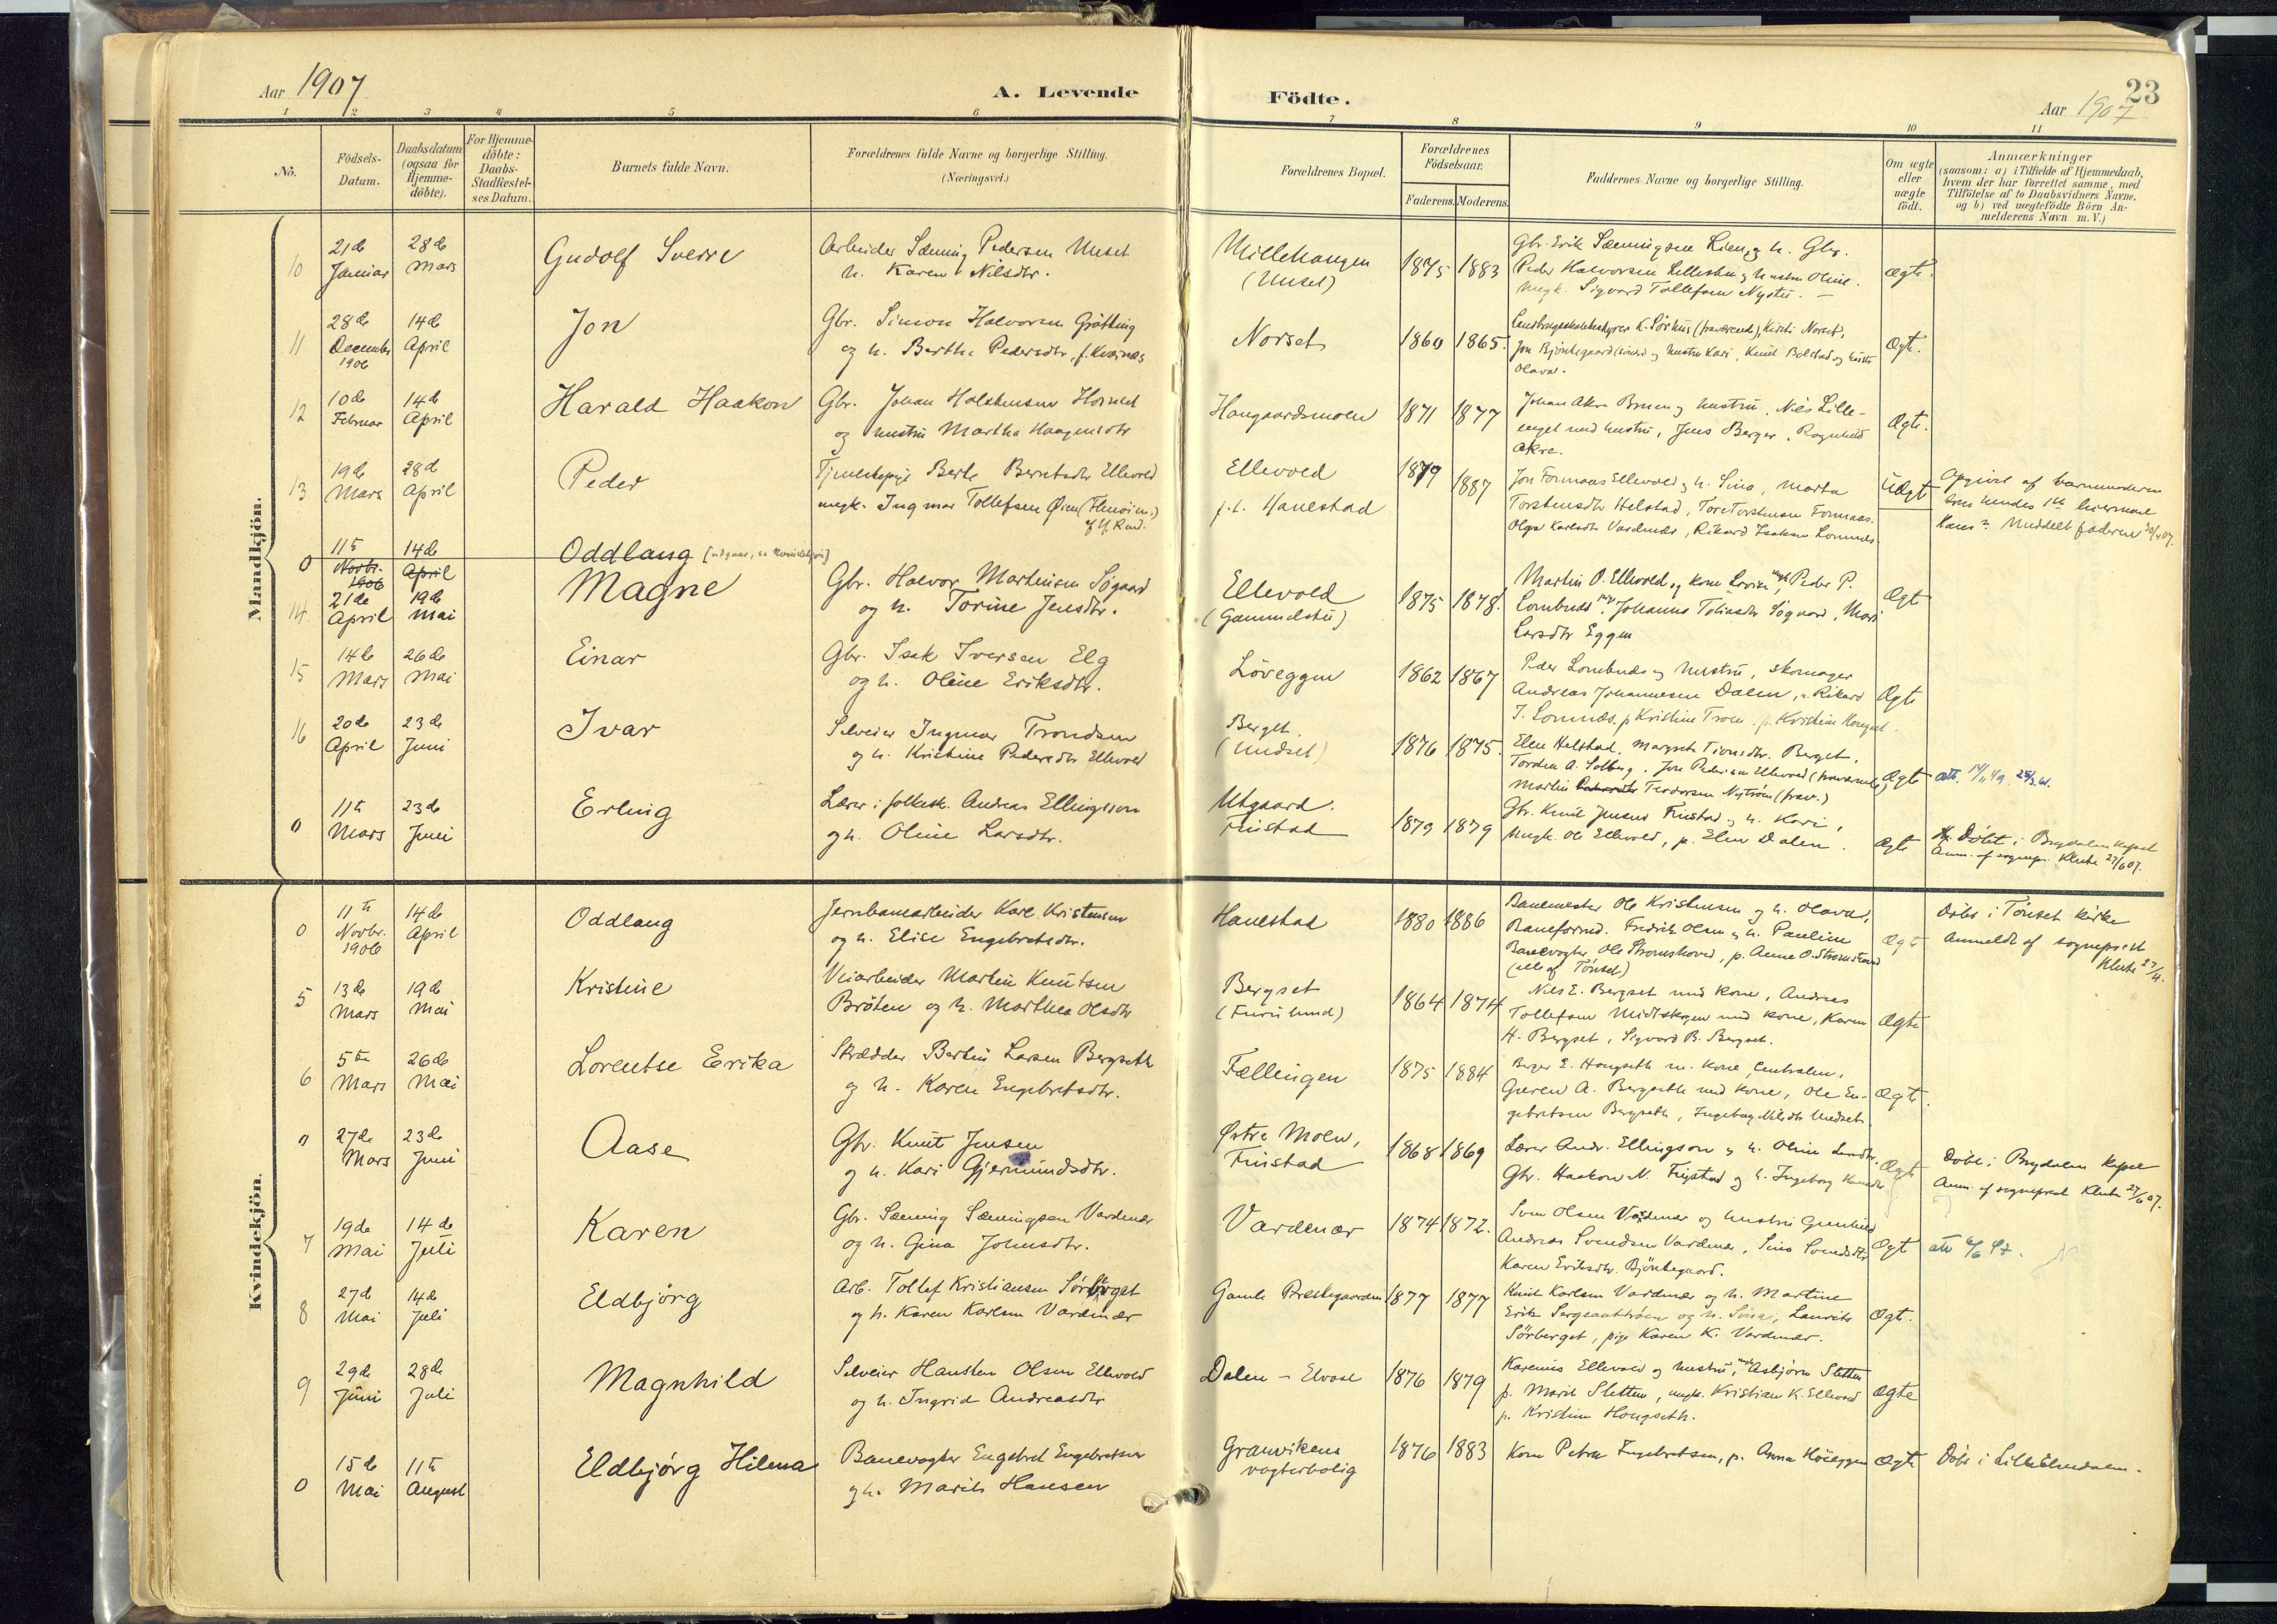 Aar 1907
A. Levende
Födte.
23
Aar 1907
1 2 3 4 5 6 7 8 9 10 11
No.
Födsels-Datum.
Daabsdatum (ogsaa for Hjemme-döbte).
For Hjemme-döbte: Daabs-Stadfæstel-ses Datum.
Barnets fulde Navn.
Forældrenes fulde Navne og borgerlige Stilling.
(Næringsvei.)
Forældrenes Bopæl.
Forældrenes Födselsaar.
Faderens. Moderens.
Faddernes Navne og borgerlige Stilling.
Om ægte eller uægte födt.
Anmærkninger
(saasom: a) i Tilfælde af Hjemmedaab,
hvem der har forrettet samme, med
Tilföielse af to Daabsvidners Navne.
og b) ved uægtefödte Börn An-
melderens Navn m. V.)
Mandkjön.
10 21de Januar 28de Mars Gudolf Sverre
Arbeider Sæming Pedersen Unset
h. Karen Nilsdtr.
(Unset)
1875 1883
Gbr. Erik Sæmingsen Lien og h. Gbr.
Peder Halvorsen og hustru Oline.
ungk. Sigvard Tollefsen Nystu.
ægte.
11 28de December 1906 14de April Jon
Gbr. Simon Halvorsen Grötting
og h. Berthe Pedersdtr. f. Kværnes
Norset
1860 1865.
Jon Björkegaard og hustru Kari, Knut Bolstad og hustru
Olava.
Ægte.
12 10de Februar 14de April Harald Haakon
Gbr. Johan Halstensen Horset
og hustru Martha Haagensdtr
Haugaardsmoen
1871 1877
Johan Akre Bruen og hustru, Nils Lille-
enget med hustru, Jens Berger, Ragnhild
Akre.
Ægte.
13 19de Mars 28de April Peder
Tjenestepige Berte Berntsdtr Ellevold
ungk. Ingmar Tollefsen Øien
Ellevold
f.t. Hanestad
1879 1887
Jon Formaas Ellevold og h. Sina, Marta
Torstensdtr Helstad, Tore Torstensen Formaas.
Olga Karlsdtr Vardenær, Rikard Isaksen Lomnes.
Uægte
Opgivet af barnemoderen
som hendes 1ste leiermaal
Hans 2. Meddelt faderen 30/4 07.
0 11te Novbr. 1906 14de April Oddlaug [udgaar, se Kvindekjøn]
14 21de April 19de Mai Magne
Gbr. Halvor Martinsen Søgaard
og h. Torine Jensdtr.
Ellevold
(Gammelstu)
1875 1878.
Martin O. Ellevold og kone Lovise, ungk. Peder P.
Lombnæs, Johanna Tobiasdtr Søgaard, Mari
Larsdtr Eggen
Ægte
15 14de Mars 26de Mai Einar
Gbr. Isak Iversen Elg
og h. Oline Eriksdtr.
Löveggen
1862 1867
Peder Lombnæs og hustru, skomager
Andreas Johannesen Dalen, u. Rikard
I. Lomnæs. p. Kristine Troen. p. Kristine Haugset.
Ægte
16 20de April 23de Juni Ivar
Selveier Ingmar Trondsen
og h. Kristine Pedersdtr Ellevold
Berget
(Undset)
1876 1875.
Elen Helstad, Margrete Berget.
Torsten A. Solberg, Jon Pedersen Ellevold
Martin Teodorsen Nyström (frav.)
Ægte
att. 14/11 49. 25/3 61.
0 11te Mars 23de Juni Erling
Lærer i folkesk. Andreas Ellingsson
og h. Oline Larsdtr.
Utgaard.
Finstad
1879 1879
Gbr. Knut Jensen Finstad og h. Kari,
ungk. Ole Ellevold, p. Elen Dalen.
Ægte
Döbt i Brydalen kapel
Anm. af sognepr. Klute 27/6 07.
Kvindekjön.
0 11te Novbr. 1906 14de April Oddlaug
Jernbanearbeider Karl Kristensen
og h. Elise Engebretsdtr.
Hanestad
1880 1886
Banemester Ole Kristensen og h. Olava,
Baneformd. Fredrik Olsen og h. Pauline
Banevogter Ole Stromshoved, p. Anne O. Stromshoved
(alle af Tönset)
Ægte
Döbt i Tönset kirke
Anmeldt af sogneprest
Klute 27/4.
5 13de Mars 19de Mai Kristine
Veiarbeider Martin Knutsen
Bröten og h. Marthea Olsdtr
Bergset
(Furulund)
1864 1874
Nils E. Bergset med kone, Andreas
Tollefsen Midtskogen med kone, Karen
H. Bergset, Sigvard B. Bergset.
Ægte
6 5te Mars 26de Mai Lorentse Erika
Skrædder Bertin Larsen Bergseth
og h. Karen Engebretsdtr.
Fællingen
1875 1884
Berger E. Haugseth m. kone, Centralen.
Græren A. Bergseth med kone, Ole En-
gebretsen Bergseth, Ingeborg Nilsdtr Undset.
Ægte.
0 27de Mars 23de Juni Aase
Gbr. Knut Jensen
og h. Kari Gjermundsdtr.
Østre Moen,
Finstad
1868 1869
Lærer Andr. Ellingson og h. Oline Larsdtr,
Gbr. Haakon N. Finstad og h. Ingeborg Hansdtr
Ægte
Döbt i Brydalen kapel
Anm. af sogneprest Klute 27/6 07.
7 19de Mai 14de Juli Karen
Gbr. Sæming Sæmingsen Vardenær
og h. Gina Johnsdtr.
Vardenær
1874 1872.
Sven Olsen Vardenær og hustru Gunhild
Andreas Svendsen Vardenær, Sina Svendsdtr
Karen Eriksdtr. Björkegaard.
Ægte
8 27de Mai 14de Juli Eldbjörg
Arb. Tollef Kristiansen Sörberget
og h. Karen Karlsen Vardenær
Gamle Præstegaarden
1877 1877
Knut Karlsen Vardenær og h. Martine
Erik Sergeanthöen og h. Sina, Laurits
Sörberget, pige Karen K. Vardenær.
Ægte.
9 29de Juni 28de Juli Magnhild
Selveier Hansten Olsen Ellevold
og h. Ingrid Andreasdtr
Dalen - Elvaal
1876 1879
Karenius Ellevold og hustru, ungk Asbjörn Sletten
p. Marit Sletten, ungk. Kristian K. Ellevold
p. Kristine Haugseth.
Ægte
0 15de Mai 11te August Eldbjørg Hilena
Banevogter Engebret Engebretsen
og h. Marit Hansen
Granvikens
vogterbolig
1876 1883
Kone Petra Engebretsen, p. Anna Höieggen
Ægte
Döbt i Lilleelvedalen.